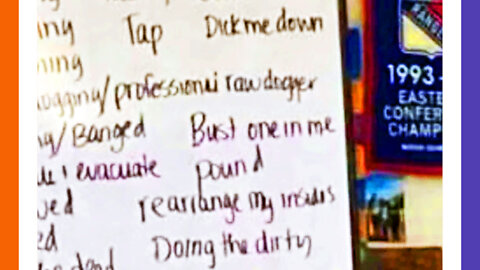 ing Tap Dick me down
ning
ogging/professional raw dogger
ng/Banged Bust one in me
evacuate pound
ved rearrange my insides
ed Doing the dirty
RANGERS
1993-
EASTE
CONFERE
CHAMP